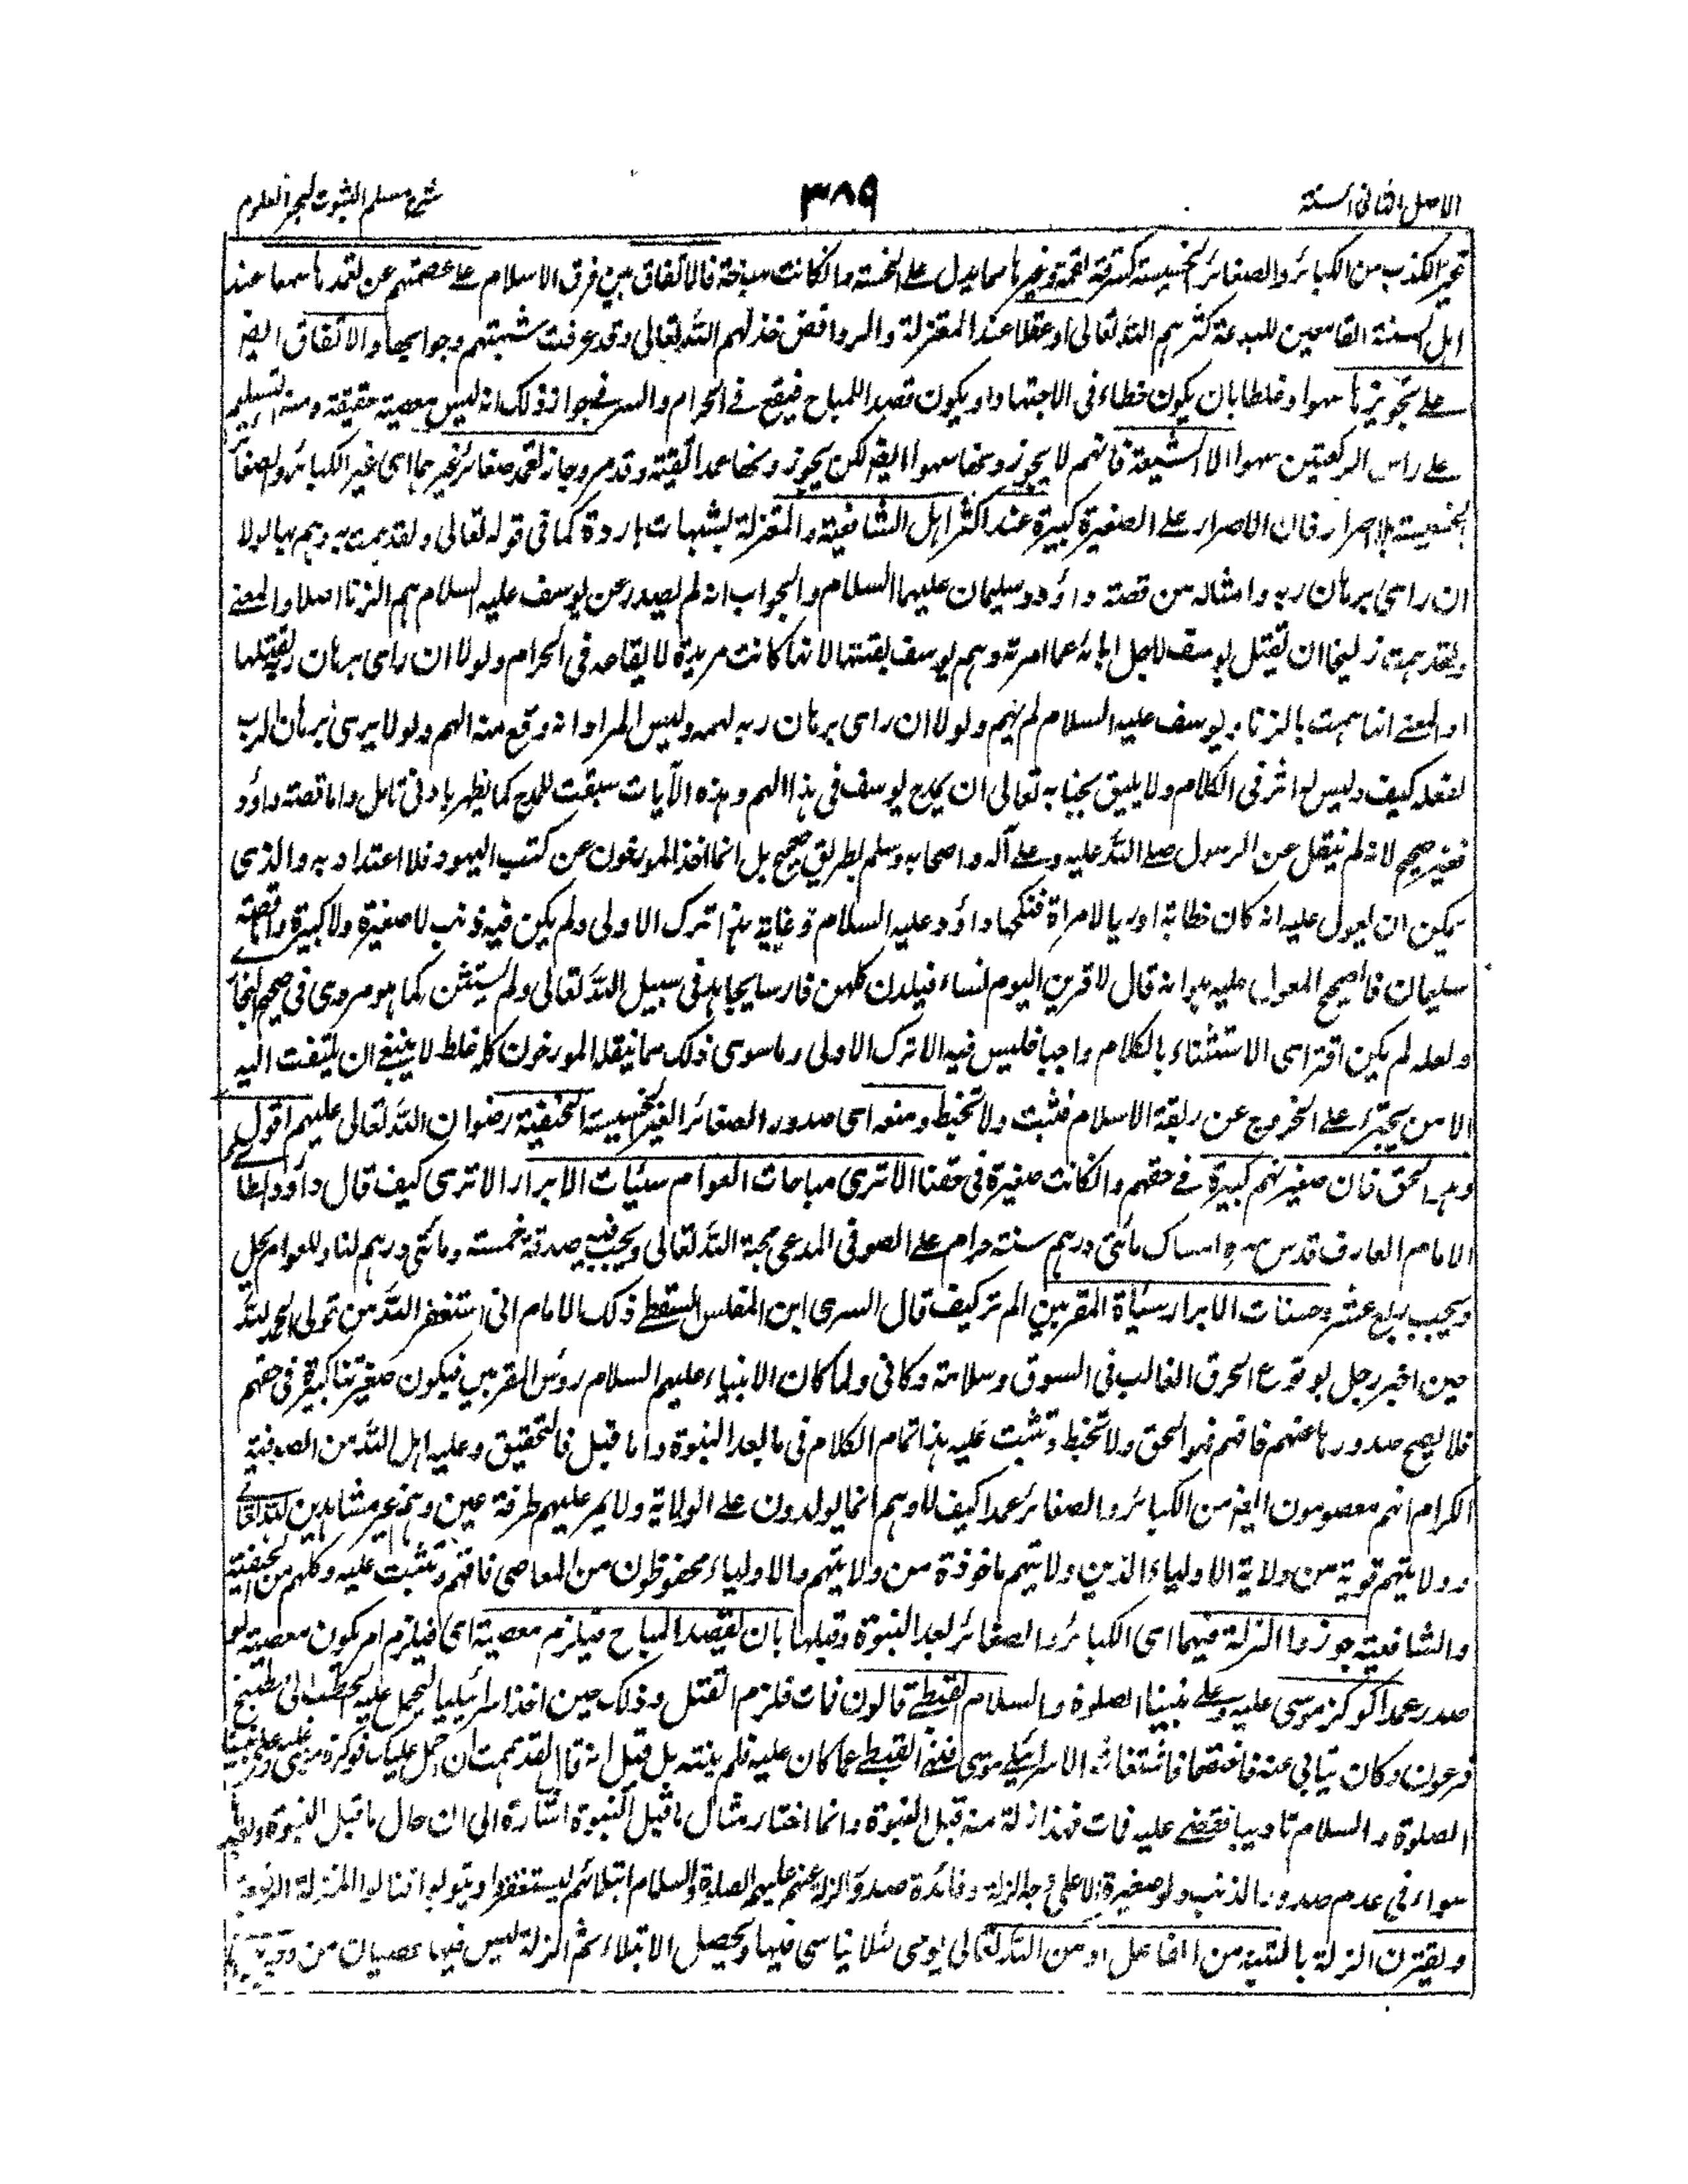 الاصل الثانی السنة ٣٨٩ شرح مسلم الثبوت لبحر العلوم
غير الكذب من الكبائر والصغائر الخسيسة كسرقة لقمة وغيرها مما يدل على الخسة وان كانت مباحة فالاتفاق بين فرق الاسلام على عصمتهم عن تعمدها سمعا عند
اهل السنة القامعين للبدعة كثرهم الله تعالى او عقلا عند المعتزلة والروافض خذلهم الله تعالى وقد عرفت شبهتهم وجوابها والاتفاق ايضا
على تجويزها سهوا وغلطا بان يكون خطاء فى الاجتهاد او يكون قصد اللمباح فيقع فى الحرام والسر فى جواز ذلك انه ليس معصية حقيقة ومنه التسليم
على راس الركعتين سهوا الا الشيعة فانهم لا يجوزونها سهوا ايضا لكن يجوزونها عمدا تقية وقد مر وجاز تعمد صغائر غيرهما اى غير الكبائر والصغائر
الخسيسة بلا اصرار فان الاصرار على الصغيرة كبيرة عند اكثر اهل الشافعية والمعتزلة بشبهات باردة كما فى قوله تعالى ولقد همت به وهم بها لولا
ان راى برهان ربه وامثاله من قصة داؤد وسليمان عليهما السلام والجواب انه لم يصدر عن يوسف عليه السلام هم الزنا اصلا والمعنى
ولقد همت زليخا ان تقتل يوسف لاجل ابائه عما امرته وهم يوسف بقتلها لانها كانت مريدة لايقاعه فى الحرام ولولا ان راى برهان ربه لقتلها
او المعنى انها همت بالزنا ويوسف عليه السلام لم يهم ولولا ان راى برهان ربه لهم وليس المراد انه وقع منه الهم ولولا يرى برهان الرب
لفعل كيف وليس له اثر فى الكلام ولا يليق بجنابه تعالى ان يمدح يوسف فى هذا الهم وهذه الآيات سيقت للمدح كما يظهر بادنى تامل واما قصة داؤد
فغير صحيح لانه لم ينقل عن الرسول صلى الله عليه وعلى آله واصحابه وسلم بطريق صحيح بل انما اخذ المورخون عن كتب اليهود فلا اعتداد به والذى
يمكن ان يعول عليه انه كان خطابة اوريا لامراة فنكحها داؤد عليه السلام وغاية هذا ترك الاولى ولم يكن فيه ذنب لا صغيرة ولا كبيرة واما قصة
سليمان فالصحيح المعول عليه هو انه قال لاقربن اليوم لنساء فيلدن كلهن فارسا يجاهد فى سبيل الله تعالى ولم يستثن كما هو مروى فى صحيح البخارى
ولعله لم يكن اقتراى الاستثناء بالكلام واجبا فليس فيه الا ترك الاولى وما سوى ذلك مما ينقله المورخون كله غلط لا ينبغى ان يلتفت اليه
الا من يجترء على الخروج عن ربقة الاسلام فتثبت ولا تخبط ومنعه اى صدور الصغائر الغير الخسيسة الحنفية رضوان الله تعالى عليهم اقول
وهو الحق فان صغيرتهم كبيرة فى حقهم وان كانت صغيرة فى حقنا الا ترى مباحات العوام سيئات الابرار الا ترى كيف قال داؤد الطائى
الامام العارف قدس سره امساك مائتى درهم سنة حرام على الصوفى المدعى محبة الله تعالى ويجب فيه صدقة خمسة ومائتى درهم لنا وللعوام يحل
ويجب ربع عشر وحسنات الابرار سيأة المقربين الم تر كيف قال السرى ابن المغلس السقطى ذلك الامام انى استغفر الله من قولى الحمد لله
حين اخبر رجل بوقوع الحرق الغالب فى السوق وسلامة دكانى ولما كان الانبياء عليهم السلام رؤس المقربين فيكون صغيرتنا كبيرة فى حقهم
فلا يصح صدورها عنهم فافهم فهو الحق ولا تخبط وتثبت عليه هذا تمام الكلام فى ما بعد النبوة واما قبل فالتحقيق وعليه اهل الله من الصوفية
الكرام انهم معصومون ايضا من الكبائر والصغائر عمدا كيف لا وهم انما يولدون على الولاية ولا يمر عليهم طرفة عين وهم غير مشاهدين لله تعالى
وولايتهم قوية من ولاية الاولياء الذين ولايتهم ماخوذة من ولايتهم والاولياء محفوظون من المعاصى فافهم وتثبت عليه وكلهم من الحنفية
والشافعية جوزوا الزلة فيهما اى الكبائر والصغائر بعد النبوة وقبلها بان يقصد المباح فيلزم معصية اى فيلزم امر يكون معصية لو
صدر عمدا كوكز موسى عليه وعلى نبينا الصلوة والسلام القبطى قالون فات فلزم القتل وذلك حين اخذ اسرائيليا ليحمل عليه الحطب الى مطبخ
فرعون وكان يتابى عنه فاختصما فاستغاث الاسرائيلى موسى فنهى القبطى عما كان عليه فلم ينته بل قيل انه قال لقد هممت ان احمل عليك فوكزه موسى
الصلوة والسلام تاديبا فقضى عليه فات فهذا زلة منه قبل النبوة وانما اختار مثال ما قبل النبوة اشارة الى ان حال ما قبل النبوة
سواء فى عدم صدور الذنب ولو صغيرة الا على وجه الزلة وفائدة صدور الزلة عنهم عليهم الصلوة والسلام ابتلائهم ليستغفروا ويتوبوا فنالوا المنزلة الرفيعة
ويقترن الزلة بالتنبيه من الفاعل او من الله تعالى يوحى لئلا يتاسى فيها ويحصل الابتلاء ثم الزلة ليس فيها عصيان من وجه